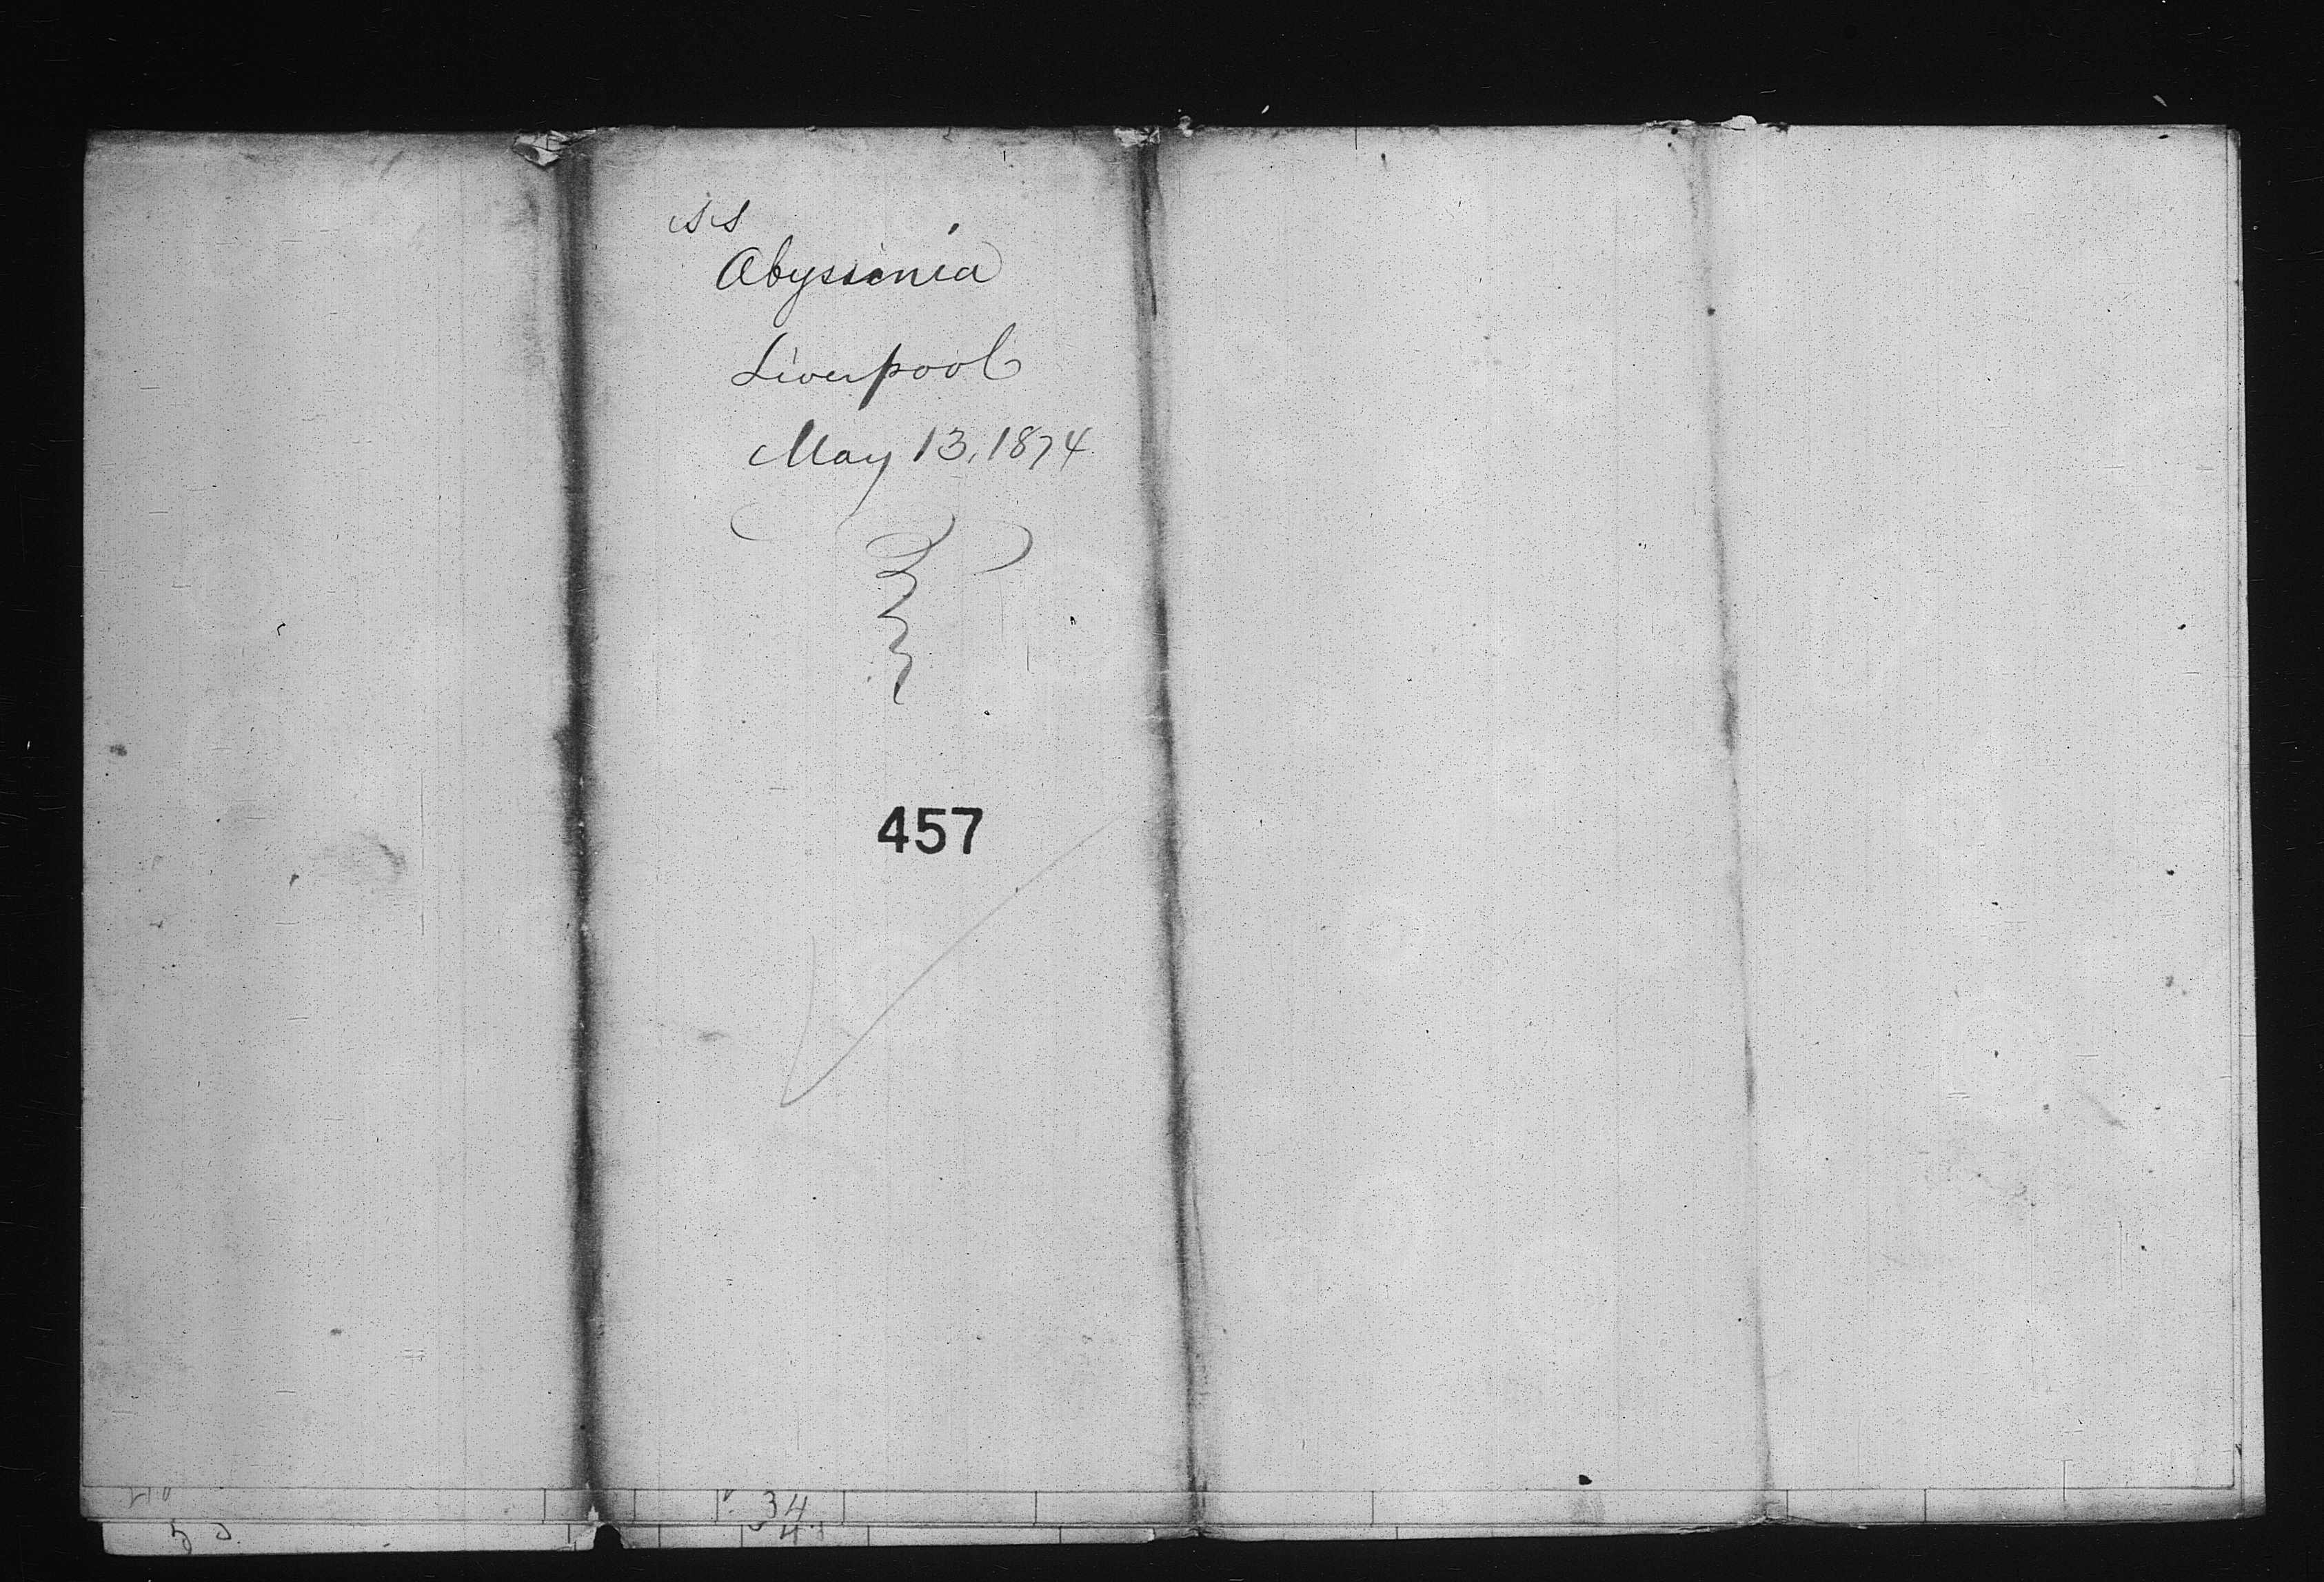 SS
Abyssinia
Liverpool
May 13, 1874
457
34